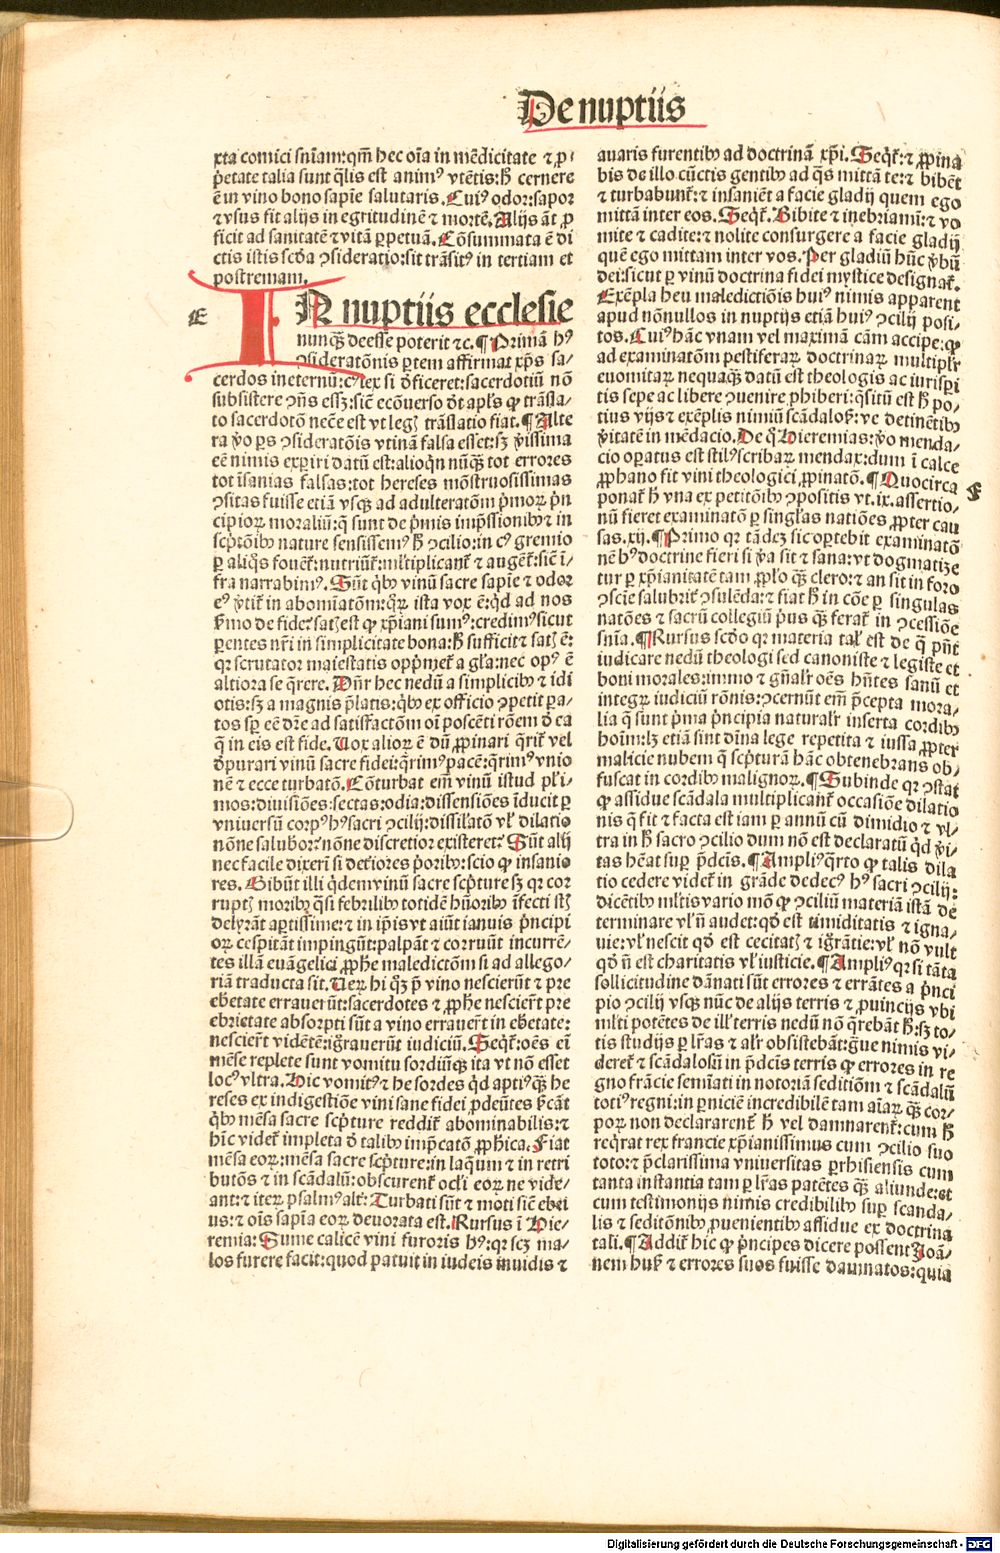 De nuptiis
xta comici sniam: qm̄ hec oīa in mēdicitate ⁊ p̱
petate talia sunt q̄lis est animꝰ vtētis: h̄ cernere
ē in vino bono sapīe salutaris. Cuiꝰ odor: sapor
⁊ vsus fit alijs in egritudinē ⁊ mortē. Alijs āt ꝓ
ficit ad sanitatē ⁊ vitā ꝑpetuā. Cōsummata ē di
ctis istis scd̄a ꝯsideratio: sit trāsitꝰ in tertiam et
postremam.
E
IN nuptiis ecclesie
nunq̄ꝫ deesse poterit ⁊c. ¶ Primā hꝰ
ꝯsideratōnis ꝑtem affirmat xp̄s sa-
cerdos in eternū: cꝰ lex si d̄ficeret: sacerdotiū nō
subsistere ꝯn̄s essꝫ: sic̄ ecōuerso d̄t apl̄s ꝙ trāsla-
to sacerdotō necē est vt legꝭ trāslatio fiat. ¶ Alte
ra v̄o ꝑs ꝯsideratōis vtinā falsa esset: sꝫ v̄issima
eē nimis exꝑiri datū est: alioq̄n nūq̄ꝫ tot errores
tot īsanias falsas: tot hereses mōstruosissimas
ꝯsitas fuisse etiā vsqꝫ ad adulteratōm p̄moꝝ p̄n
cipioꝝ moraliū: q̄ sunt de p̄mis imp̄ssionibꝰ ⁊ in
scp̄tōibꝰ nature sensissemꝰ h̄ ꝯcilio: in cꝰ gremio
ꝑ aliq̄s fouen̄t: nutriun̄t: ml̄tiplicant̄ ⁊ augen̄t: sic̄ ī-
fra narrabimꝰ. Sūt q̄bꝰ vinū sacre sapīe ⁊ odor
eꝰ v̄tit̄ in abomīatōm: q̄ꝝ ista vox ē: q̄d ad nos
ß̄mo de fide? satꝭ est ꝙ xp̄iani sumꝰ: credimꝰ sicut
ꝑentes nr̄i in simplicitate bona: h̄ sufficit ⁊ satꝭ ē:
qr̄ scrutator maiestatis opp̄met̄ a gl̄a: nec opꝰ ē
altiora se q̄rere. Dn̄r hec nedū a simplicibꝰ ⁊ idi
otis: sꝫ a magnis p̄latis: q̄bꝰ ex officio ꝯpetit ꝑa-
tos sꝑ eē dare ad satisfactōm oī poscēti rōem d̄ ea
q̄ in eis est fide. Uox alioꝝ ē dū ꝓpinari q̄rit̄ vel
d̄purari vinū sacre fidei: q̄rimꝰ pacē: q̄rimꝰ vnio
nē ⁊ ecce turbatō. Cōturbat em̄ vinū istud pl̄i-
mos: diuisiōes: sectas: odia: dissensiōes īducit ꝑ
vniuersū corpꝰ hꝰ sacri ꝯcilij: dissil̄atō vl̄ dilatio
nōne salubor? nōne discretior existeret? Sūt alij
nec facile dixerī si det̄iores p̄oribꝰ: scio ꝙ insanio
res. Bibūt illi q̄dem vinū sacre scp̄ture sꝫ qr̄ cor
ruptꝭ moribꝰ q̄si febrilibꝰ totidē hūoribꝰ īfecti stꝭ
delyrāt aꝑtissime: ⁊ in ip̄is vt aiūt ianuis p̄ncipi
oꝝ cespitāt impingūt: palpāt ⁊ corruūt incurrē-
tes illā euāgelicā ꝓph̄e maledictōm si ad allego-
riā traducta sit. Ueꝝ hi q̄ꝫ p̄ vino nescierūt ⁊ pre
eb̄etate errauerūt: sacerdotes ⁊ ꝓph̄e nescier̄t pre
ebrietate absorpti sūt a vino errauer̄t in eb̄etate:
nescier̄t vidētē: igr̄auerūt iudiciū. Seqt̄: oēs eī
mēse replete sunt vomitu sordiūqꝫ ita vt nō esset
locꝰ vltra. Hic vomitꝰ ⁊ he sordes q̄d aptiꝰ q̄ꝫ he
reses ex indigestiōe vini sane fidei ꝓdeūtes ß̄cāt
q̄bꝰ mēsa sacre scp̄ture reddit̄ abominabilis: ⁊
h̄ic videt̄ impleta d̄ talibꝰ imp̄catō ꝓph̄ica. Fiat
mēsa eoꝝ: mēsa sacre scp̄ture: in laq̄um ⁊ in retri
butōs ⁊ in scādalū: obscurent̄ ocl̄i eoꝝ ne vide-
ant: ⁊ iteꝝ psalmꝰ alt̄: Turbati sūt ⁊ moti sic̄ ebri
us: ⁊ oīs sapīa eoꝝ deuorata est. Rursus ī Hie-
remia: Sume calicē vini furoris hꝰ: qr̄ scꝫ ma-
los furere facit: quod patuit in iudeis inuidis ⁊
auaris furentibꝰ ad doctrinā xp̄i. Seqt̄: ⁊ ꝓpina
bis de illo cūctis gentibꝰ ad q̄s mittā te: ⁊ bibēt
⁊ turbabunt̄: ⁊ insaniēt a facie gladij quem ego
mittā inter eos. Seqt̄. Bibite ⁊ inebriamī: ⁊ vo
mite ⁊ cadite: ⁊ nolite consurgere a facie gladij
quē ego mittam inter vos. Per gladiū hūc v̄bū
dei: sicut ꝑ vinū doctrina fidei mystice designat̄.
Exēpla heu maledictiōis huiꝰ nimis apparent
apud nōnullos in nuptijs etiā huiꝰ ꝯcilij posi-
tos. Cuiꝰ hāc vnam vel maximā cām accipe: ꝙ
ad examinatōm pestiferaꝝ doctrinaꝝ multipl̄r
euomitaꝝ nequaq̄ꝫ datū est theologis ac iurisꝑi
tis sepe ac libere ꝯuenire. ꝓhiberi: q̄situ est h̄ po-
tius vijs ⁊ exēplis nimiū scādalos̄: ve detinētibꝰ
v̄itatē in mēdacio. De q̄ Hieremias: v̄o menda-
cio oꝑatus est stilꝰ scribaꝝ mendax: dum ī calce
ꝓphano fit vini theologici ꝓpinatō. ¶ Quocirca
F
ponat̄ h̄ vna ex petitōibꝰ ꝯpositis vt. ix. assertio-
nū fieret examinatō ꝑ singl̄as natiōes ꝓpter cau
sas. xij. ¶ Primo qr̄ tādeꝫ sic oꝑtebit examinatō
nē hꝰ doctrine fieri si v̄a sit ⁊ sana: vt dogmatize
tur ꝑ xp̄ianitatē tam ꝓpl̄o q̄ꝫ clero: ⁊ an sit in foro
ꝯscīe salubrit̄ ꝯsulēda: ⁊ fiat h̄ in cōe ꝑ singulas
natōes ⁊ sacrū collegiū p̄us q̄ꝫ ferat̄ in ꝯcessiōe
snīa. ¶ Rursus scd̄o qr̄ materia tal̄ est de q̄ pn̄t
iudicare nedū theologi sed canoniste ⁊ legiste et
boni morales: immo ⁊ gn̄alr̄ oēs hn̄tes sanū et
integꝝ iudiciū rōnis: ꝯcernūt em̄ p̄cepta mora-
lia q̄ sunt p̄ma p̄ncipia naturalr̄ inserta cordibꝰ
hoīm: lꝫ etiā sint dīna lege repetita ⁊ iussa ꝓpter
malicie nubem q̄ scp̄turā hāc obtenebrans ob-
fuscat in cordibꝰ malignoꝝ. ¶ Subinde qr̄ ꝯstat
ꝙ assidue scādala multiplicant̄ occasiōe dilatio
nis q̄ fit ⁊ facta est iam ꝑ annū cū dimidio ⁊ vl-
tra in h̄ sacro ꝯcilio dum nō est declaratū q̄d v̄i-
tas heat suꝑ p̄dcis. ¶ Ampliꝰ q̄rto ꝙ talis dila
tio cedere videt̄ in grāde dedecꝰ hꝰ sacri ꝯcilij:
dicētibꝰ ml̄tis vario mō ꝙ ꝯciliū materiā istā dē
terminare vl̄ n̄ audet: qd̄ est timiditatis ⁊ igna-
uie: vl̄ nescit qd̄ est cecitatꝭ ⁊ igr̄atie: vl̄ nō vult
qd̄ n̄ est charitatis vl̄ iusticie. ¶ Ampliꝰ qr̄ si tāta
sollicitudine dānati sūt errores ⁊ errātes a p̄nci
pio ꝯcilij vsqꝫ nūc de alijs terris ⁊ ꝓuincijs vbi
ml̄ti potētes de ill̄ terris nedū nō q̄rebāt h̄: sꝫ to-
tis studijs ꝑ lr̄as ⁊ al̄r obsistebāt: gͣue nimis vi-
deret̄ ⁊ scādalosū in p̄dcis terris ꝙ errores in re
gno frācie semīati in notoriā seditiōm ⁊ scādalū
totiꝰ regni: in ꝑniciē incredibilē tam aīaꝝ q̄ꝫ cor-
poꝝ non declararent̄ h̄ vel damnarent̄: cum h̄
req̄rat rex francie xp̄ianissimus cum ꝯcilio suo
toto: ⁊ p̄clarissima vniuersitas ꝑrhisiensis cum
tanta instantia tam ꝑ lr̄as patētes q̄ꝫ aliunde: et
cum testimonijs nimis credibilibꝰ suꝑ scanda-
lis ⁊ seditōibꝰ ꝓuenientibꝰ assidue ex doctrina
tali. ¶ Addit̄ hic ꝙ p̄ncipes dicere possent Joā-
nem huß ⁊ errores suos fuisse damnatos: quia
Digitalisierung gefördert durch die Deutsche Forschungsgemeinschaft - DFG